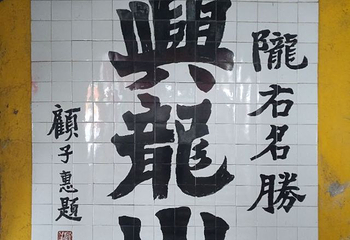 隴右名勝
興龍山
顧子惠題